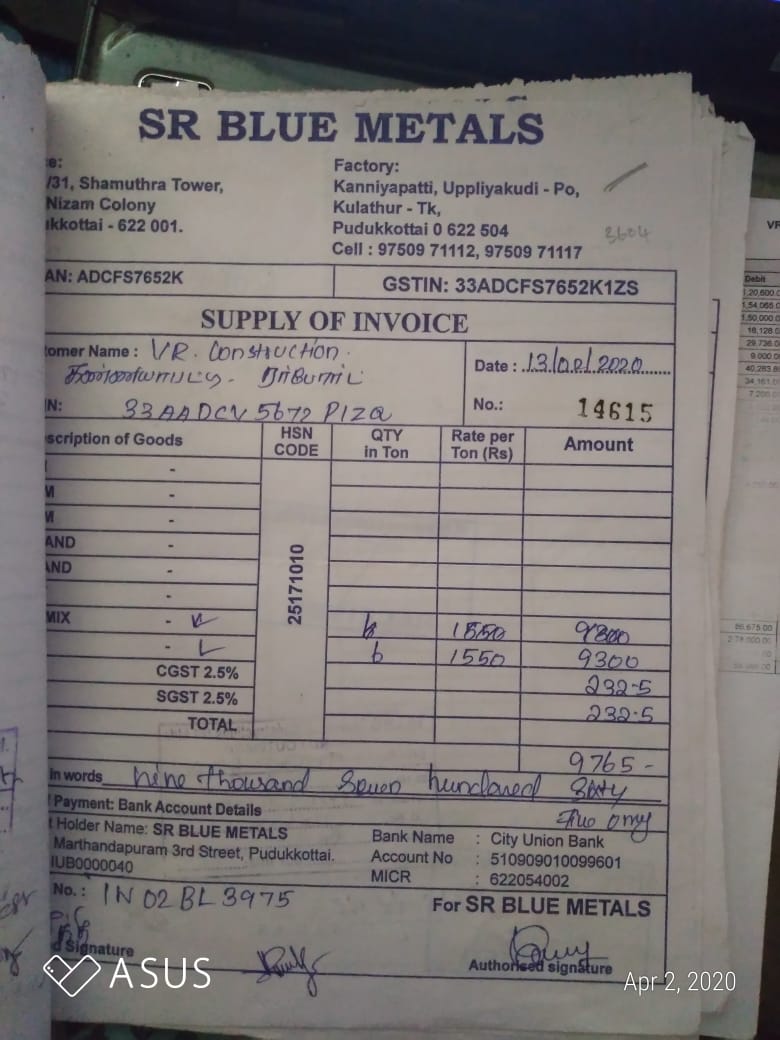 SR BLUE METALS
e:
/31, Shamuthra Tower,
Nizam Colony
ukkottai - 622 001.
Factory:
Kanniyapatti, Uppliyakudi - Po,
Kulathur - Tk,
Pudukkottai 0 622 504
Cell : 97509 71112, 97509 71117
3604
AN: ADCFS7652K
GSTIN: 33ADCFS7652K1ZS
SUPPLY OF INVOICE
tomer Name : VR. Construction.
Date : 13/02/2020
IN: 33AADCV5672P1ZQ
No.: 14615
scription of Goods
HSN CODE
QTY in Ton
Rate per Ton (Rs)
Amount
M
M
AND
AND
25171010
MIX - 1550 9300
- 6 1550 9300
CGST 2.5% 232.5
SGST 2.5% 232.5
TOTAL
9765 -
in words nine thousand seven hundared Sixty
Five only
Payment: Bank Account Details
t Holder Name: SR BLUE METALS
Marthandapuram 3rd Street, Pudukkottai.
IUB0000040
Bank Name : City Union Bank
Account No : 510909010099601
MICR : 622054002
No. : TN 02 BL 3975
For SR BLUE METALS
d Signature
Authorised signature
ASUS
Apr 2, 2020
VR
Debit
1,20,600.0
1,54,065.0
1,50,000.0
18,128.0
29,736.0
9,000.0
40,283.8
34,161.0
7,200.0
86,675.00
2,78,000.00